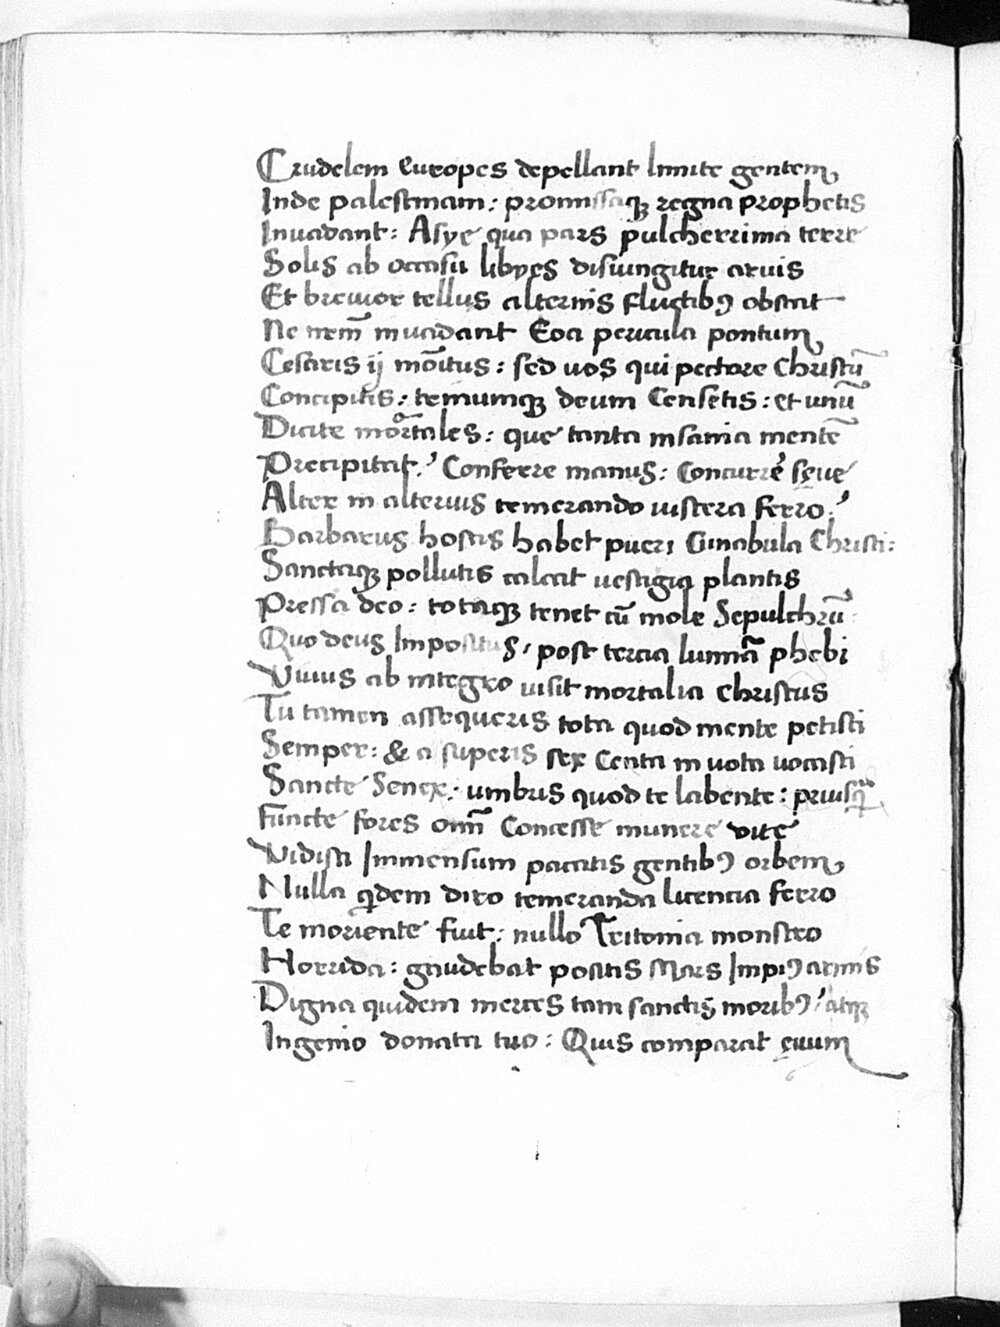 Crudelem europes depellant limite gentem
Inde palestinam: promissaqꝫ regna prophetis
Inuadant: Asye qua pars pulcherrima terre
Solis ab occasu libyes disiungitur aruis
Et breuior tellus alternis fluctibꝯ obstat
Ne nr̄m inuadant Eoa pericula pontum
Cesaris ij mōitus: sed uos qui pectore Christū
Concipitis: temumqꝫ deum Censetis: et unū
Dicite mortales: que tanta insania mentē
Precipitat? Conferre manus: Concurrē sęue
Alter in alterius temerando uiscera ferro?
Barbarus hostis habet pueri Cunabula Christi:
Sanctaqꝫ pollutis calcat uestigia plantis
Pressa deo: totaqꝫ tenet cū mole Sepulchrū
Quo deus Impositus, post tercia luminā phebi
Viuus ab integro uisit mortalia christus
Tu tamen assequeris tota quod mente petisti
Semper: & a superis sex Centa in uota uocasti
Sancte Senex: umbris quod te labente: priusq̄
Functe fores om̄i Concesse munere vite
Vidisti Immensum pacatis gentibꝯ orbem
Nulla qͥdem diro temeranda licencia ferro
Te moriente fiut: nullo Tritonia monstro
Horrida: gaudebat positis Mars Impiꝯ armis
Digna quidem merces tam sanctis moribꝯ, atqꝫ
Ingenio donata tuo: Quis comparat ęuum